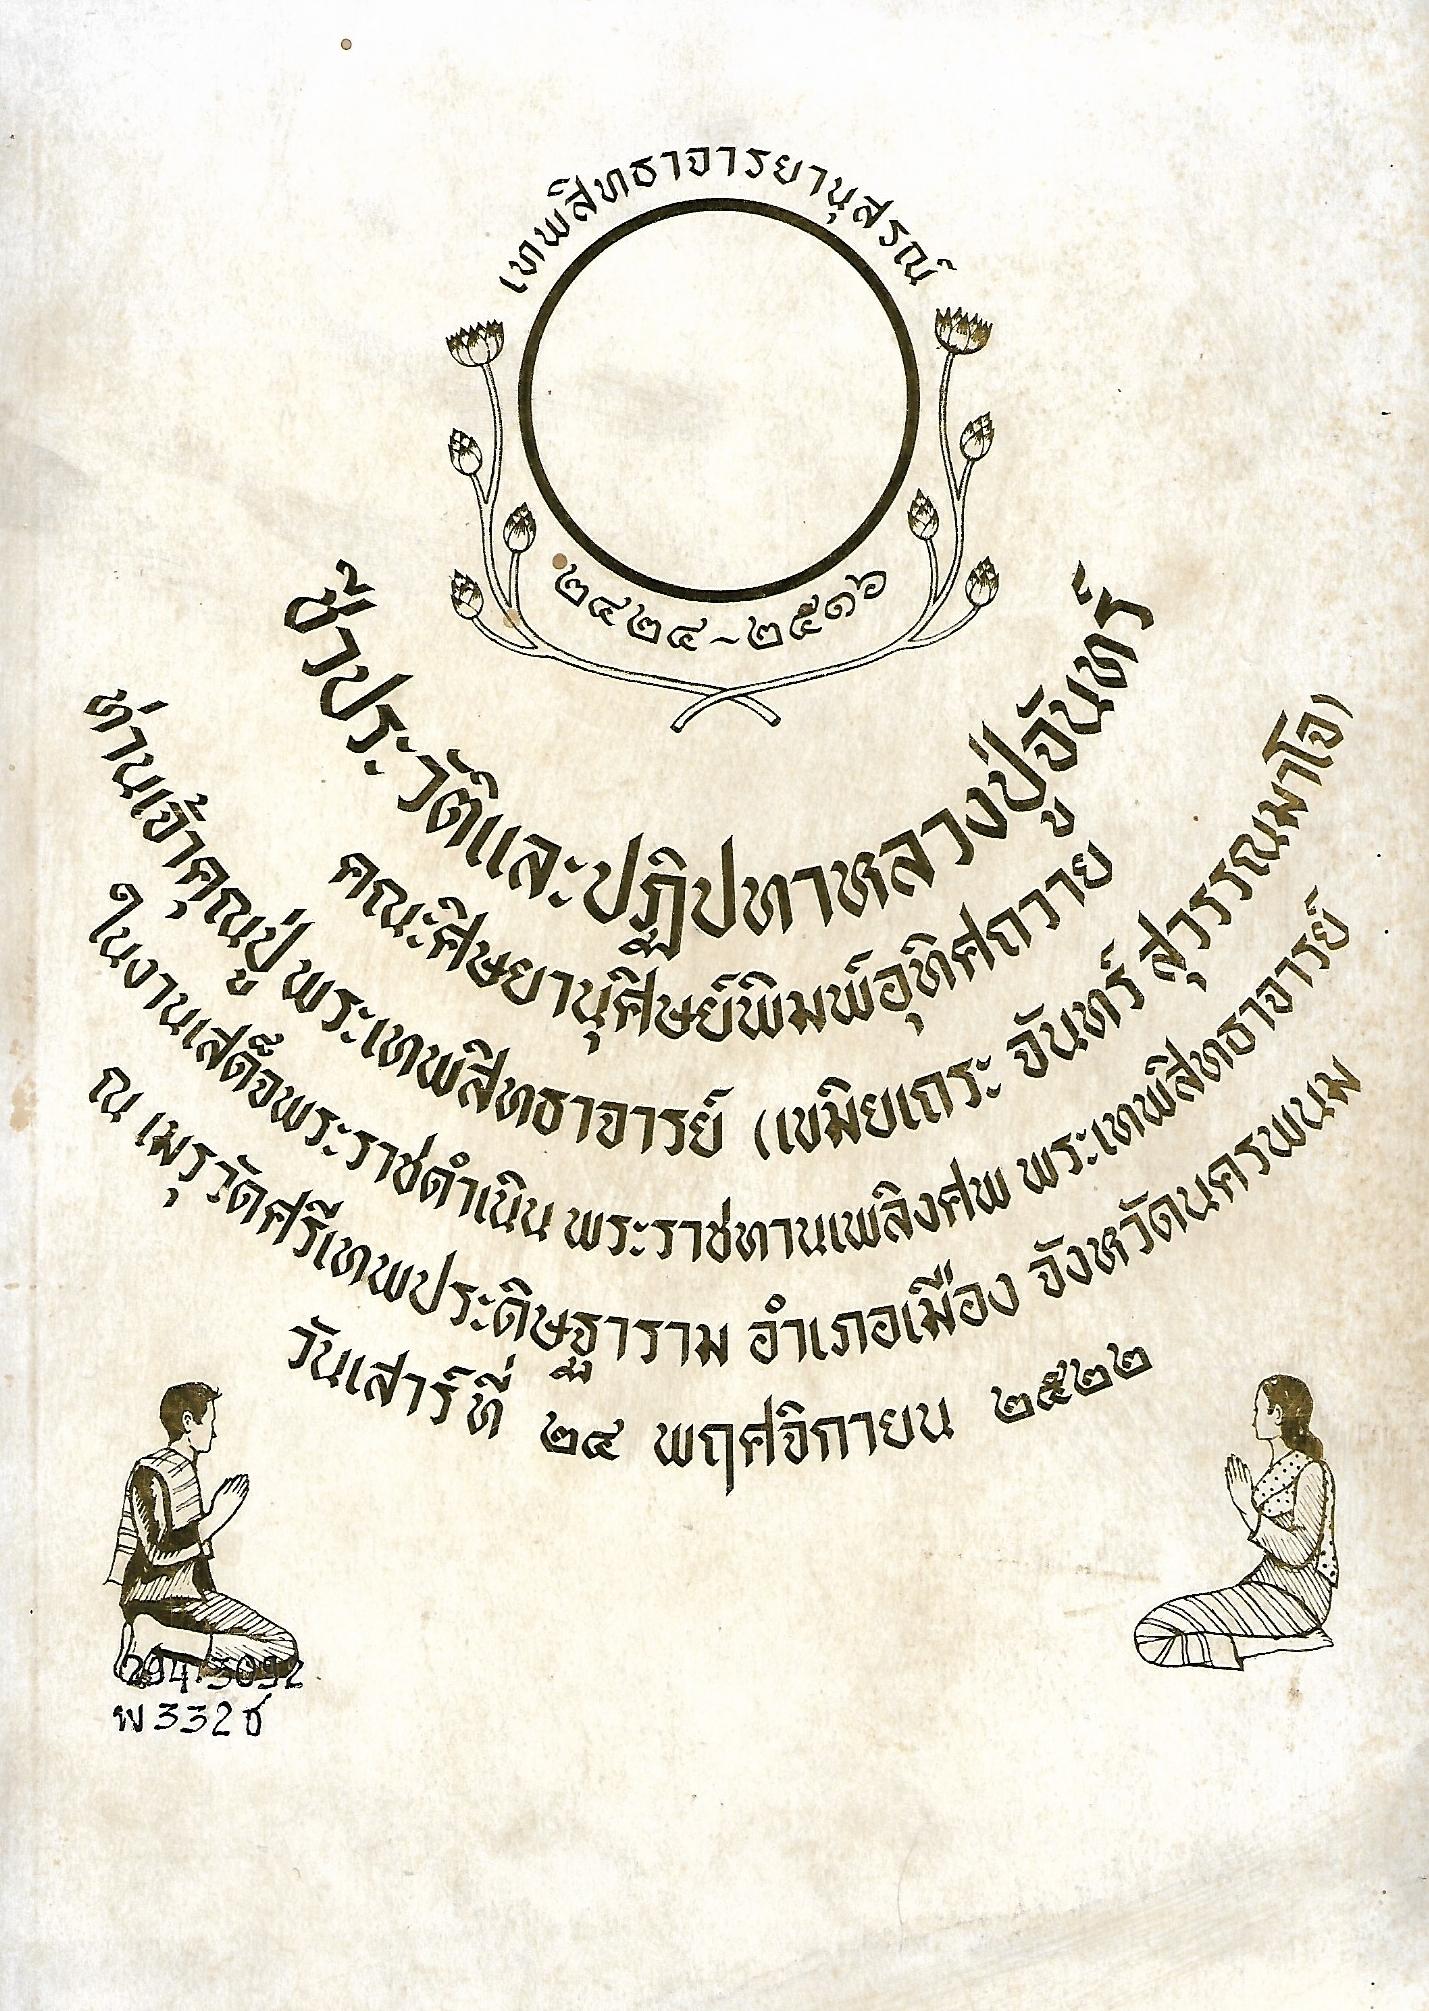 เทพสิทธาจารยานุสรณ์
๒๔๒๔-๒๕๑๖
ชีวประวัติและปฏิปทาหลวงปู่จันทร์
คณะศิษยานุศิษย์พิมพ์อุทิศถวาย
ท่านเจ้าคุณปู่ พระเทพสิทธาจารย์ (เขมิยเถระ จันทร์ สุวรรณมาโจ)
ในงานเสด็จพระราชดำเนิน พระราชทานเพลิงศพ พระเทพสิทธาจารย์
ณ เมรุวัดศรีเทพประดิษฐาราม อำเภอเมือง จังหวัดนครพนม
วันเสาร์ที่ ๒๔ พฤศจิกายน ๒๕๒๒
294.3092
พ332ช